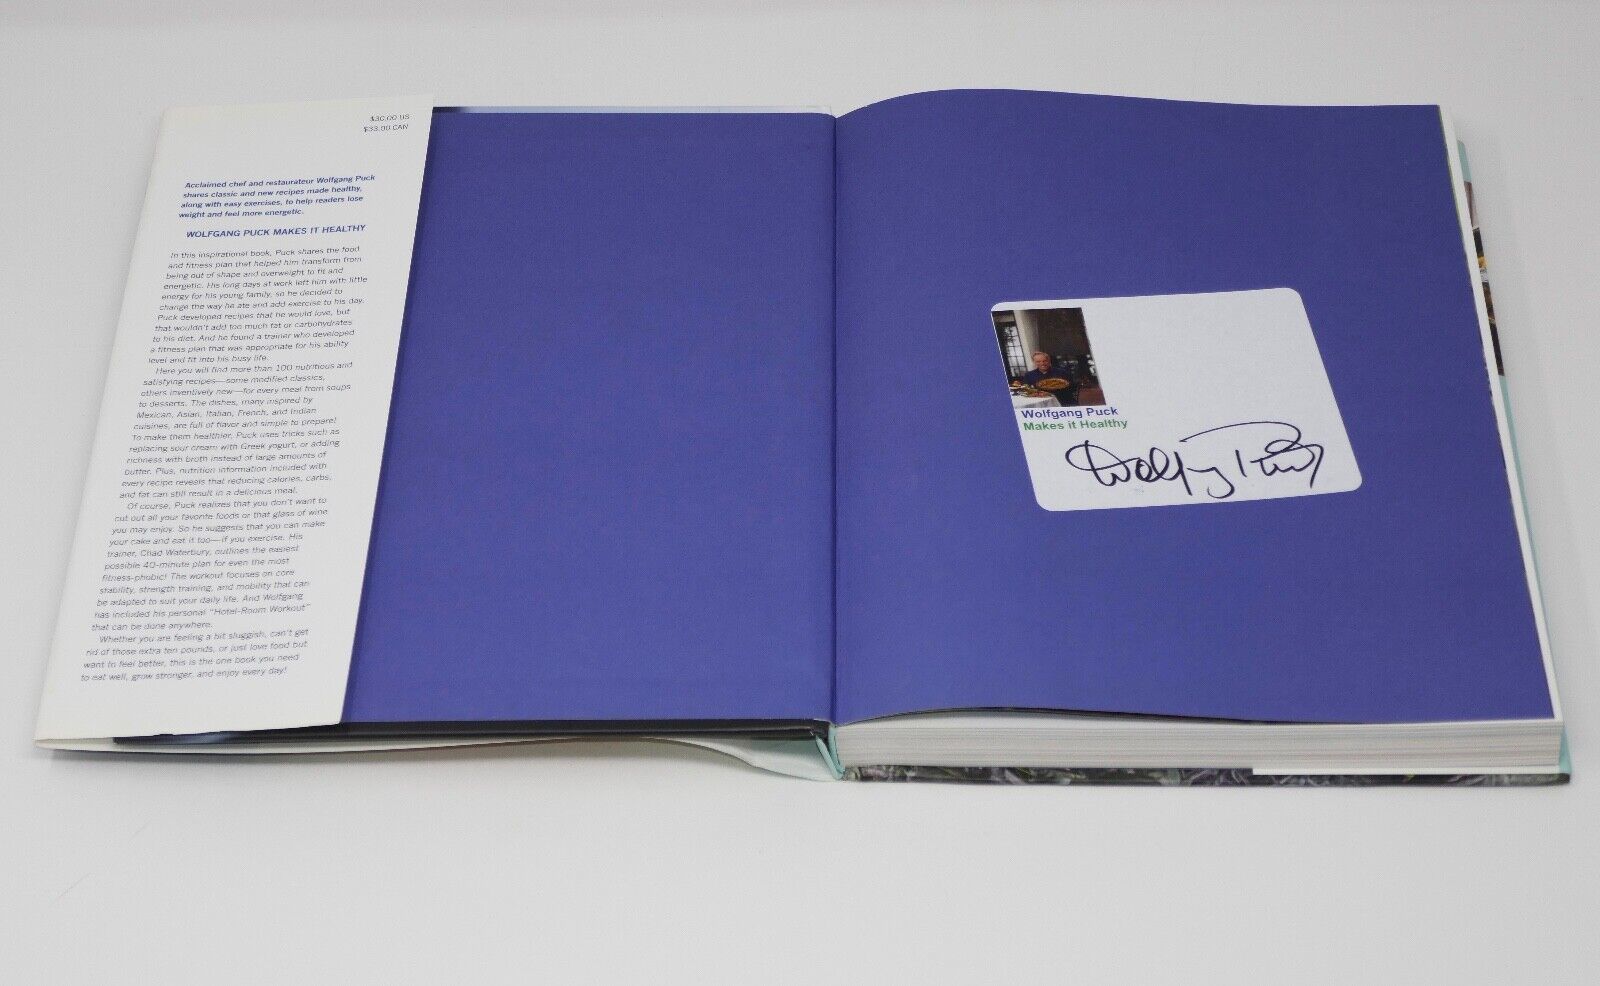 $30.00 US
$33.00 CAN
Acclaimed chef and restaurateur Wolfgang Puck
shares classic and new recipes made healthy,
along with easy exercises, to help readers lose
weight and feel more energetic.
WOLFGANG PUCK MAKES IT HEALTHY
In this inspirational book, Puck shares the food
and fitness plan that helped him transform from
being out of shape and overweight to fit and
energetic. His long days at work left him with little
energy for his young family, so he decided to
change the way he ate and add exercise to his day.
Puck developed recipes that he would love, but
that wouldn't add too much fat or carbohydrates
to his diet. And he found a trainer who developed
a fitness plan that was appropriate for his ability
level and fit into his busy life.
Here you will find more than 100 nutritious and
satisfying recipes—some modified classics,
others inventively new—for every meal from soups
to desserts. The dishes, many inspired by
Mexican, Asian, Italian, French, and Indian
cuisines, are full of flavor and simple to prepare!
To make them healthier, Puck uses tricks such as
replacing sour cream with Greek yogurt, or adding
richness with broth instead of large amounts of
butter. Plus, nutrition information included with
every recipe reveals that reducing calories, carbs,
and fat can still result in a delicious meal.
Of course, Puck realizes that you don't want to
cut out all your favorite foods or that glass of wine
you may enjoy. So he suggests that you can make
your cake and eat it too—if you exercise. His
trainer, Chad Waterbury, outlines the easiest
possible 40-minute plan for even the most
fitness-phobic! The workout focuses on core
stability, strength training, and mobility that can
be adapted to suit your daily life. And Wolfgang
has included his personal "Hotel-Room Workout"
that can be done anywhere.
Whether you are feeling a bit sluggish, can't get
rid of those extra ten pounds, or just love food but
want to feel better, this is the one book you need
to eat well, grow stronger, and enjoy every day!
Wolfgang Puck
Makes it Healthy
Wolfgang Puck